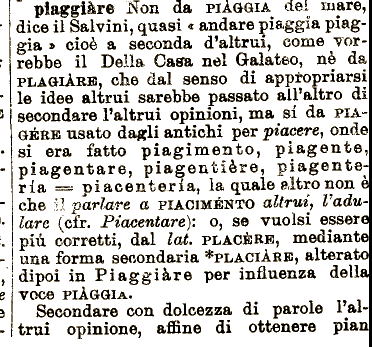 piaggiàre Non da PIÀGGIA del mare,
dice il Salvini, quasi « andare piaggia piag-
gia » cioè a seconda d'altrui, come vor-
rebbe il Della Casa nel Galateo, nè da
PLAGIÀRE, che dal senso di appropriarsi
le idee altrui sarebbe passato all'altro di
secondare l'altrui opinioni, ma sì da PIA-
GÉRE usato dagli antichi per piacere, onde
si era fatto piagimento, piagente,
piagentare, piagentière, piagente-
ría = piacentería, la quale altro non è
che il parlare a PIACIMÉNTO altrui, l'adu-
lare (cfr. Piacentare): o, se vuolsi essere
piú corretti, dal lat. PLACÈRE, mediante
una forma secondaria *PLACIÀRE, alterato
dipoi in Piaggiàre per influenza della
voce PIÀGGIA.
Secondare con dolcezza di parole l'al-
trui opinione, affine di ottenere pian